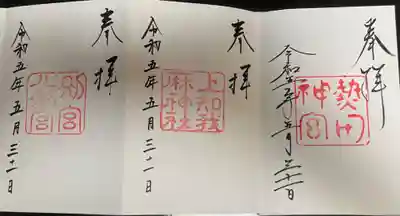 奉拝
熱田
神宮
令和五年五月三十一日
奉拝
上知我
麻神社
令和五年五月三十一日
奉拝
別宮
八剣宮
令和五年五月三十一日